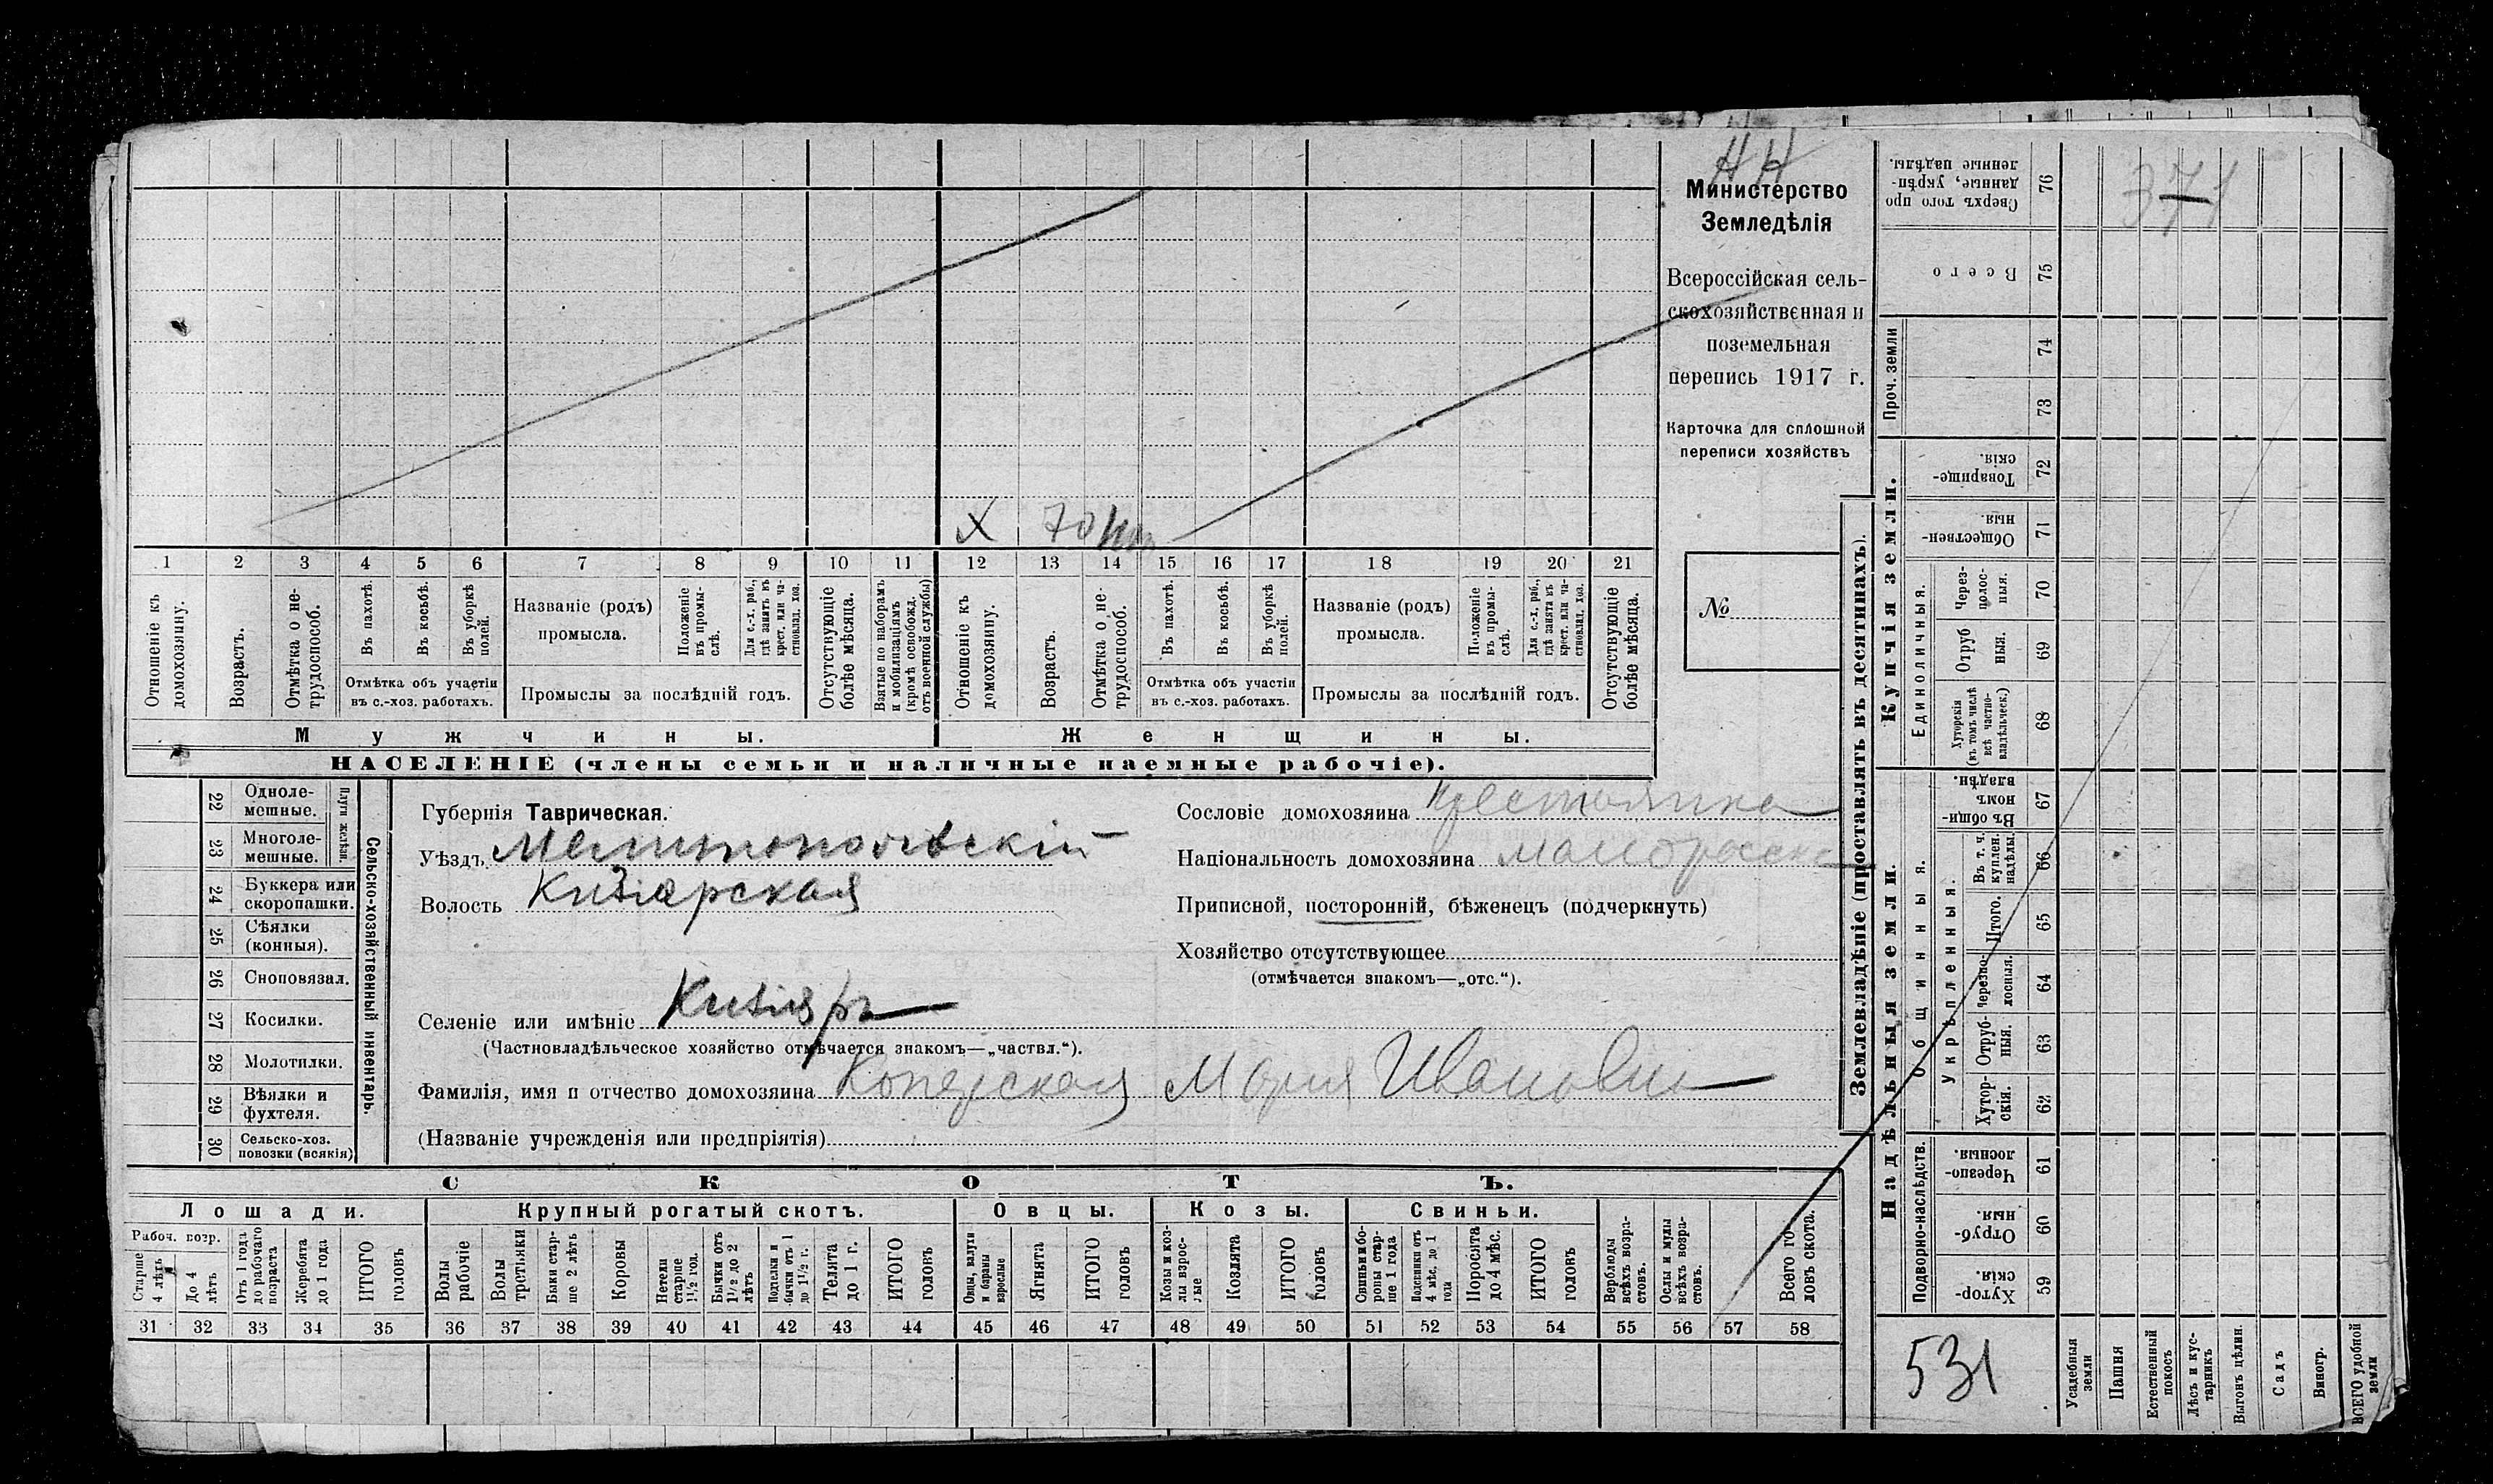 Н Н
Министерство
Земледѣлія
Всероссійская сель-
скохозяйственная и
поземельная
перепись 1917 г.
Карточка для сплошной
переписи хозяйствъ
№
371
X 70
1 2 3 4 5 6 7 8 9 10 11 12 13 14 15 16 17 18 19 20 21
Отношеніе къ домохозяину.
Возрастъ.
Отмѣтка о не-трудоспособ.
Въ пахотѣ.
Въ косьбѣ.
Въ уборкѣ полей.
Отмѣтка объ участіи
въ с.-хоз. работахъ.
Названіе (родъ)
промысла.
Положеніе въ промы-слѣ.
Для с.-х. раб., гдѣ занятъ въ крест. или ча-стновлад. хоз.
Промыслы за послѣдній годъ.
Отсутствующіе болѣе мѣсяца.
Взятые по наборамъ и мобилизаціямъ (кромѣ освобожд. отъ военной службы)
Отношеніе къ домохозяину.
Возрастъ.
Отмѣтка о не-трудоспособ.
Въ пахотѣ.
Въ косьбѣ.
Въ уборкѣ полей.
Отмѣтка объ участіи
въ с.-хоз. работахъ.
Названіе (родъ)
промысла.
Положеніе въ промы-слѣ.
Для с.-х. раб., гдѣ занята въ крест. или ча-стновлад. хоз.
Промыслы за послѣдній годъ.
Отсутствующіе болѣе мѣсяца.
Мужчины.
Женщины.
НАСЕЛЕНІЕ (члены семьи и наличные наемные рабочіе).
22 Однолемешные.
23 Многолемешные.
Плуги желѣзн.
24 Буккера или скоропашки.
25 Сѣялки (конныя).
26 Сноповязал.
27 Косилки.
28 Молотилки.
29 Вѣялки и фухтеля.
30 Сельско-хоз. повозки (всякія)
Сельско-хозяйственный инвентарь.
Губернія Таврическая.
Уѣздъ Мелитопольскій
Волость Кизіярская
Селеніе или имѣніе Кизіяръ
(Частновладѣльческое хозяйство отмѣчается знакомъ—„частвл.“).
Фамилія, имя и отчество домохозяина Мария Ивановна
(Названіе учрежденія или предпріятія)
Сословіе домохозяина крестьянка
Національность домохозяина малоросска
Приписной, посторонній, бѣженецъ (подчеркнуть)
Хозяйство отсутствующее
(отмѣчается знакомъ—„отс.“).
СКОТЪ.
Лошади.
Крупный рогатый скотъ.
Овцы.
Козы.
Свиньи.
Рабоч. возр.
Старше 4 лѣтъ
До 4 лѣтъ
Отъ 1 года до рабочаго возраста
Жеребята до 1 года
ИТОГО головъ
Волы рабочіе
Волы третьяки
Быки стар-ше 2 лѣтъ
Коровы
Нетели старше 1½ год.
Бычки отъ 1½ до 2 лѣтъ
Подтелки и бычки отъ 1 до 1½ г.
Телята до 1 г.
ИТОГО головъ
Овцы, валухи и бараны взрослые
Ягнята
ИТОГО головъ
Козы и коз-лы взрос-лые
Козлята
ИТОГО головъ
Свиньи и бо-ровы стар-ше 1 года
Подсвинки отъ 4 мѣс. до 1 года
Поросята до 4 мѣс.
ИТОГО головъ
Верблюды всѣхъ возра-стовъ.
Ослы и мулы всѣхъ возра-стовъ.
Всего го-ловъ скота.
31 32 33 34 35 36 37 38 39 40 41 42 43 44 45 46 47 48 49 50 51 52 53 54 55 56 57 58
Землевладѣніе (проставлять въ десятинахъ).
Купчія земли.
Надѣльныя земли.
Сверхъ того про данные, укрѣп-ленные надѣлы. 76
Всего 75
Проч. земли
74
73
Товарище-скія. 72
Обществен-ныя. 71
Единоличныя.
Через-полос-ныя. 70
Отруб ныя. 69
Хуторскія (въ томъ числѣ всѣ частно-владѣльческ.) 68
Общинныя.
Въ общи-номъ владѣн. 67
Укрѣпленныя.
Въ т. ч. куплен. надѣлы. 66
Итого. 65
Черезпо-лосныя. 64
Отруб-ныя. 63
Хутор-скія. 62
Подворно-наслѣдств.
Черезпо-лосныя. 61
Отруб-ныя. 60
Хутор-скія. 59
531
Усадебныя земли
Пашня
Естественный покосъ
Лѣсъ и кус-тарникъ
Выгонъ цѣлин.
Садъ
Виногр.
ВСЕГО удобной земли